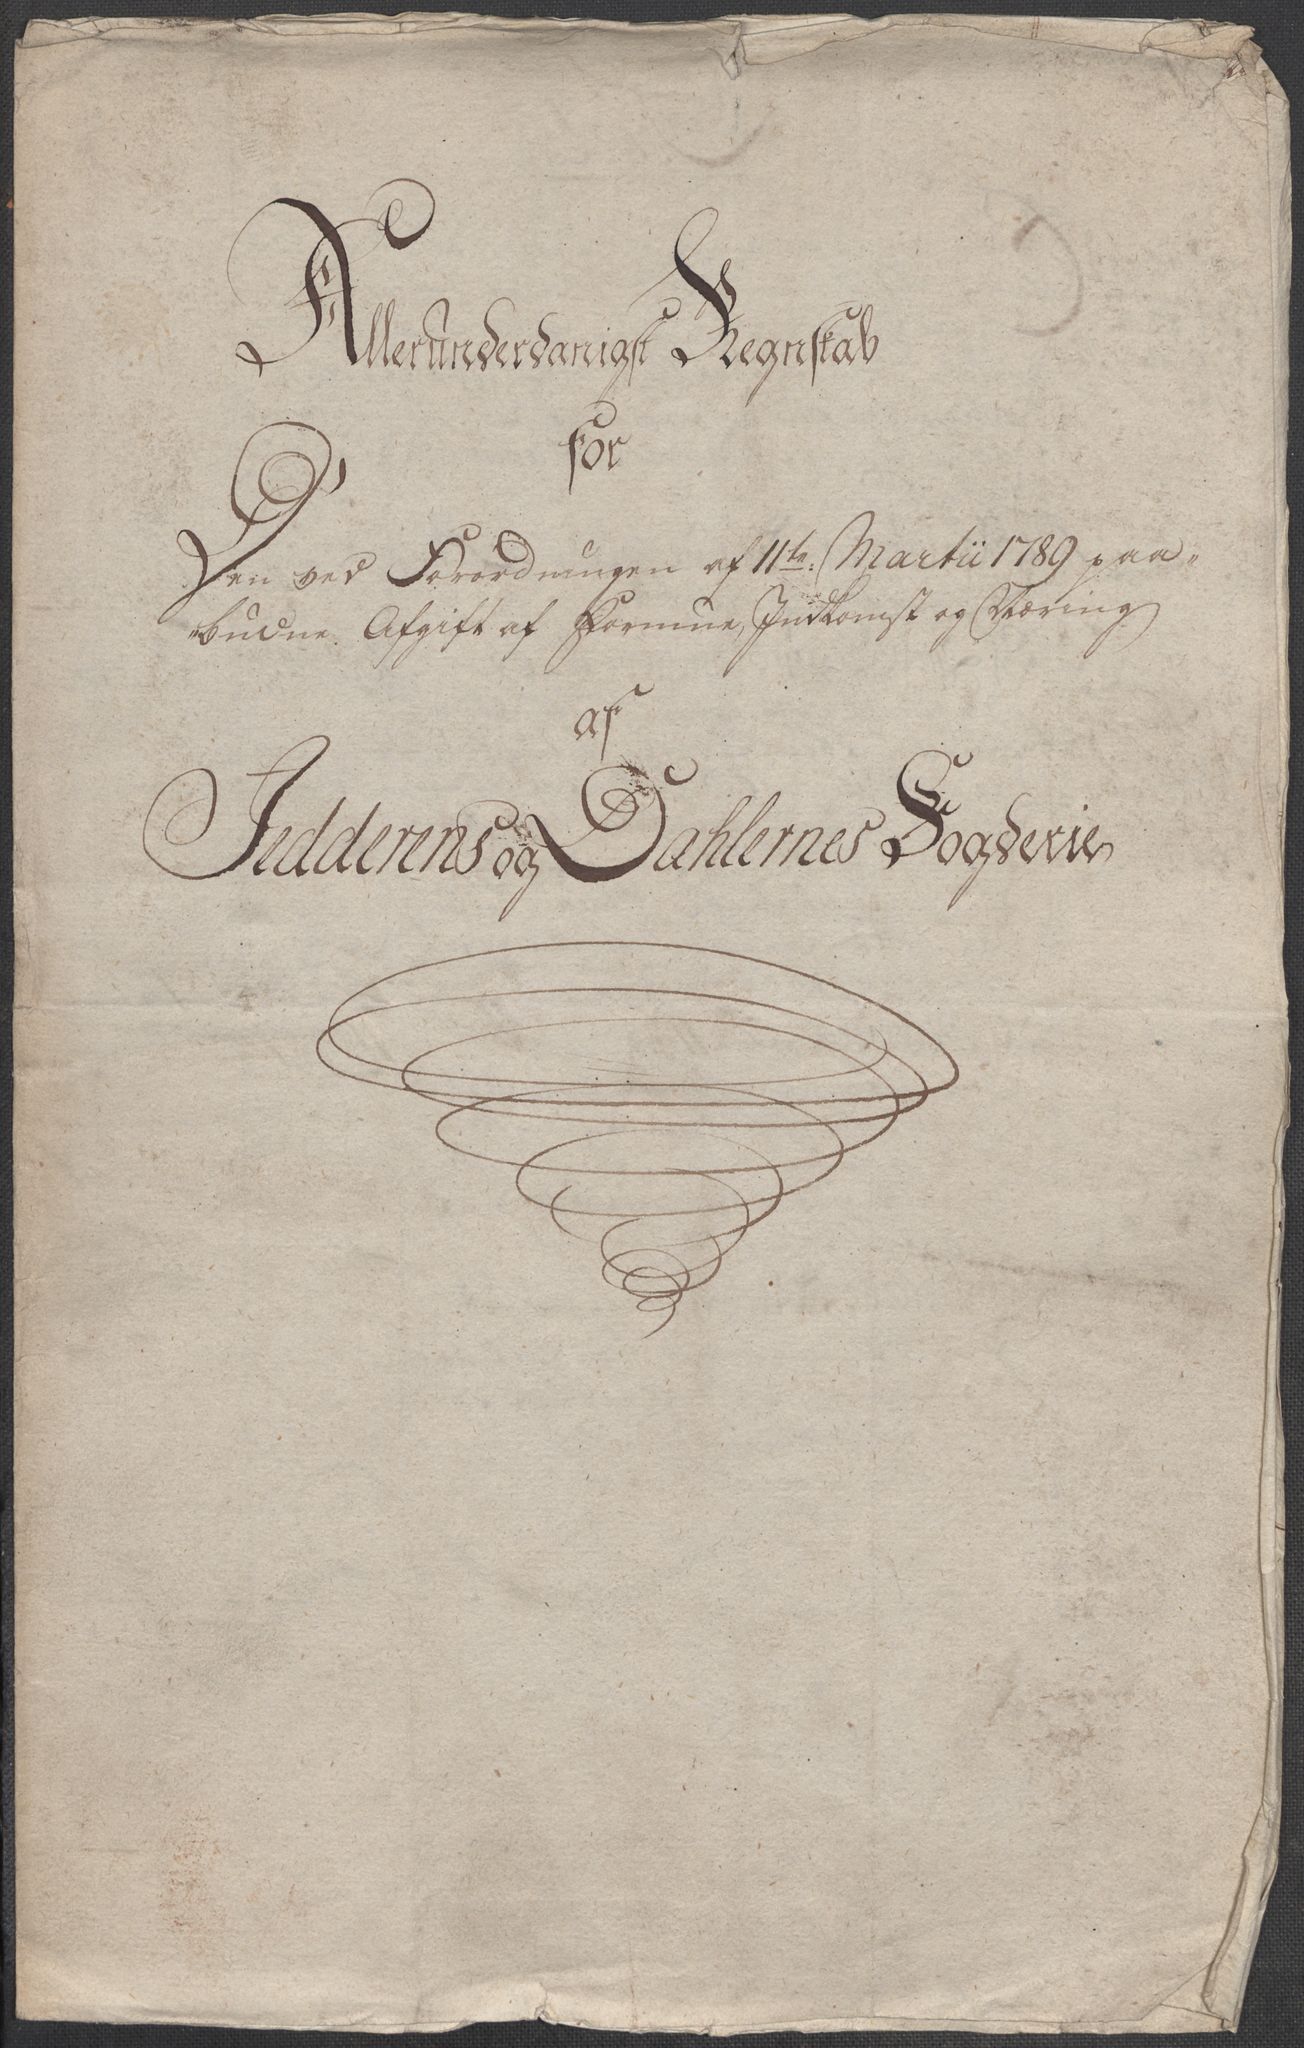 Allerunderdanigst Regnskab
for
Den ved Forordningen af 11te. Martii 1789 paa-
-budne Afgift af Formue, Indkomst og Næring
af
Jedderens og Dahlernes Fogderie